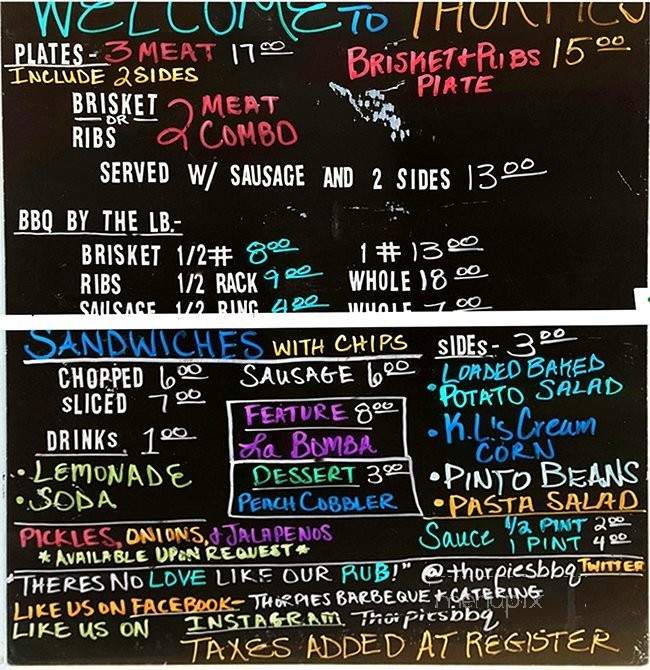 WELCOME TO THORPIES
PLATES - 3 MEAT 17 00
INCLUDE 2 SIDES
BRISKET + RIBS 15 00
PLATE
BRISKET
OR
RIBS
2 MEAT
COMBO
SERVED W/ SAUSAGE AND 2 SIDES 13 00
BBQ BY THE LB.-
BRISKET 1/2# 8 00 1# 13 00
RIBS 1/2 RACK 9 00 WHOLE 18 00
SAUSAGE 1/2 RING 4 00 WHOLE 7 00
SANDWICHES WITH CHIPS
CHOPPED 6 00 SAUSAGE 6 00
SLICED 7 00
FEATURE 8 00
La BOMBA
DRINKS 1 00
• LEMONADE
• SODA
DESSERT 3 00
PEACH COBBLER
SIDES - 3 00
LOADED BAKED
• POTATO SALAD
• K.L.'s Cream
CORN
• PINTO BEANS
• PASTA SALAD
PICKLES, ONIONS, + JALAPENOS
* AVAILABLE UPON REQUEST *
Sauce 1/2 PINT 2 00
1 PINT 4 00
"THERES NO LOVE LIKE OUR RUB!" @thorpiesbbq TWITTER
LIKE US ON FACEBOOK - THORPIES BARBEQUE + CATERING
LIKE US ON INSTAGRAM Thorpiesbbq
menupix
TAXES ADDED AT REGISTER